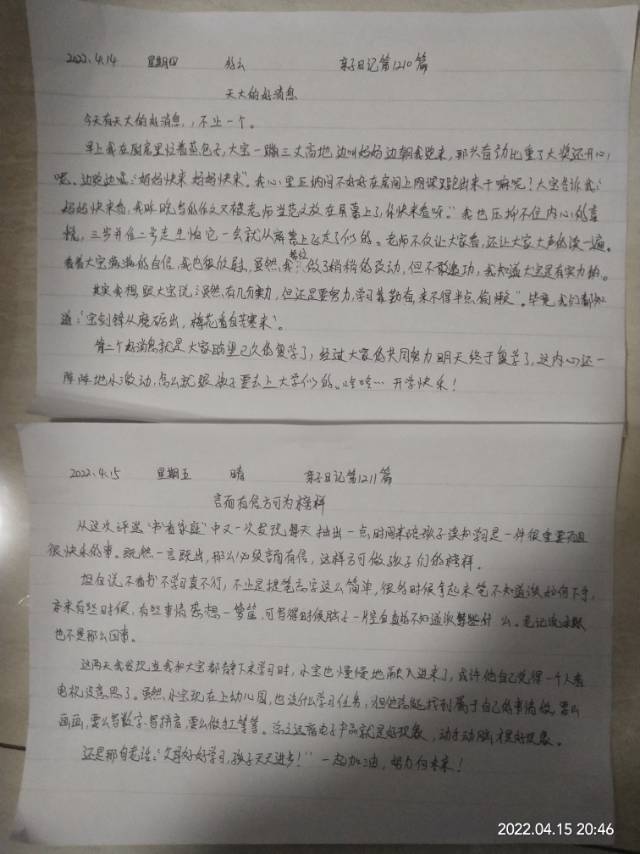 2022.4.14 星期四 多云 亲子日记第1210篇
天大的好消息
今天有天大的好消息,不止一个。
早上我在厨房里位着蒸包子,大宝一蹦三丈高地,边叫妈妈边朝我跑来,那兴奋劲比中了大奖还开心
呢。边跑边喊:“妈妈快来 妈妈快来”。我心里正纳闷不好好在房间上网课跑出来干嘛呢?大宝告诉我:
“妈妈快来看,我昨晚写的作文又被老师当范文放在屏幕上了,你快来看呀。”我也压抑不住内心的喜
悦,三步并做二步走生怕它一会就从屏幕上飞走了似的。老师不仅让大家看,还让大家大声的读一遍。
看着大宝满满的自信,我也很欣慰,虽然,我给他做了稍稍的改动,但不敢邀功,我知道大宝是有实力的。
其实我想跟大宝说:虽然有几分实力,但还是要努力,学习靠勤奋,来不得半点偷懒”。毕竟我们都知
道:“宝剑锋从磨砺出,梅花香自苦寒来”。
第二个好消息就是大家盼望已久的复学了,经过大家的共同努力明天终于复学了,这内心还一
阵阵地小激动,怎么就跟孩子要去上大学似的。哈哈… 开学快乐!
2022.4.15 星期五 晴 亲子日记第1211篇
言而有信方可为榜样
从这次评选“书香家庭”中又一次发现每天抽出一点时间来陪孩子读书学习是一件很重要而且
很快乐的事。既然一言既出,那么必须言而有信,这样方可做孩子们的榜样。
坦白说不看书不学习真不行,不止是提笔忘字这么简单,很多时候拿起来笔不知道该如何下手,
本来有些时候,有些事情思想一箩筐,可写得时候脑子一片空白真的不知道该写些什么。笔记该
也不是那么回事。
这两天我发现当我和大宝都静下来学习时,小宝也慢慢地融入进来了,或许他自己觉得一个人看
电视没意思了。虽然,小宝现在上幼儿园,也没什么学习任务,但他总能找到属于自己的事情做,要么
画画,要么写数字、写拼音,要么做手工等等。总之远离电子产品就是好现象,动手动脑才是好现象。
还是那句老话:“父母好好学习,孩子天天进步!”一起加油,努力向未来!
2022.04.15 20:46